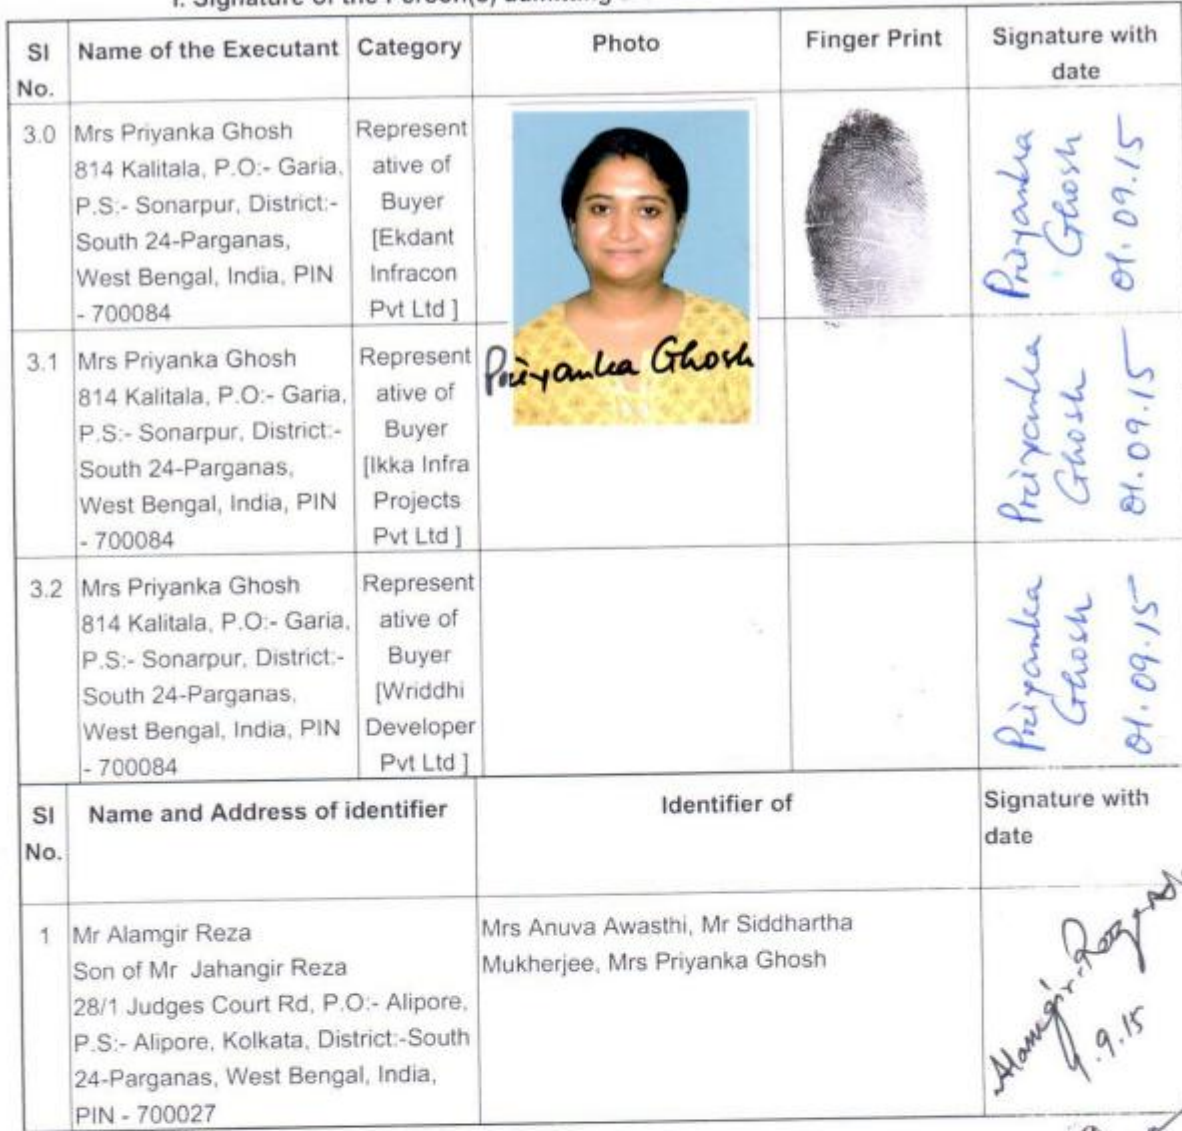 I. Signature of the Person(s) admitting
SI No.
Name of the Executant
Category
Photo
Finger Print
Signature with date
3.0
Mrs Priyanka Ghosh
814 Kalitala, P.O:- Garia,
P.S:- Sonarpur, District:-
South 24-Parganas,
West Bengal, India, PIN
- 700084
Represent
ative of
Buyer
[Ekdant
Infracon
Pvt Ltd ]
Priyanka Ghosh
Priyanka
Ghosh
01.09.15
3.1
Mrs Priyanka Ghosh
814 Kalitala, P.O:- Garia,
P.S:- Sonarpur, District:-
South 24-Parganas,
West Bengal, India, PIN
- 700084
Represent
ative of
Buyer
[Ikka Infra
Projects
Pvt Ltd ]
Priyanka
Ghosh
01.09.15
3.2
Mrs Priyanka Ghosh
814 Kalitala, P.O:- Garia,
P.S:- Sonarpur, District:-
South 24-Parganas,
West Bengal, India, PIN
- 700084
Represent
ative of
Buyer
[Wriddhi
Developer
Pvt Ltd ]
Priyanka
Ghosh
01.09.15
SI No.
Name and Address of identifier
Identifier of
Signature with
date
1
Mr Alamgir Reza
Son of Mr Jahangir Reza
28/1 Judges Court Rd, P.O:- Alipore,
P.S:- Alipore, Kolkata, District:-South
24-Parganas, West Bengal, India,
PIN - 700027
Mrs Anuva Awasthi, Mr Siddhartha
Mukherjee, Mrs Priyanka Ghosh
Alamgir Reza
1.9.15